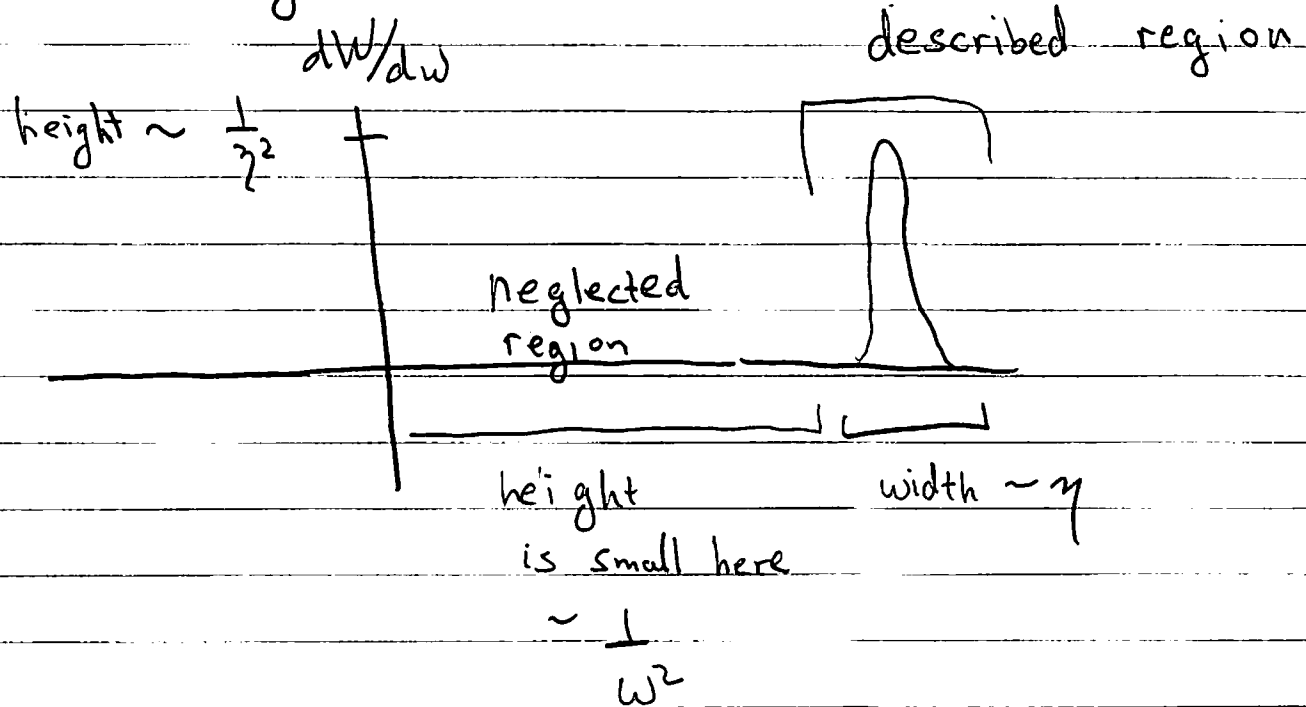 dW/dω
described region
height ~ 1/η²
neglected
region
height
is small here
~ 1/ω²
width ~ η